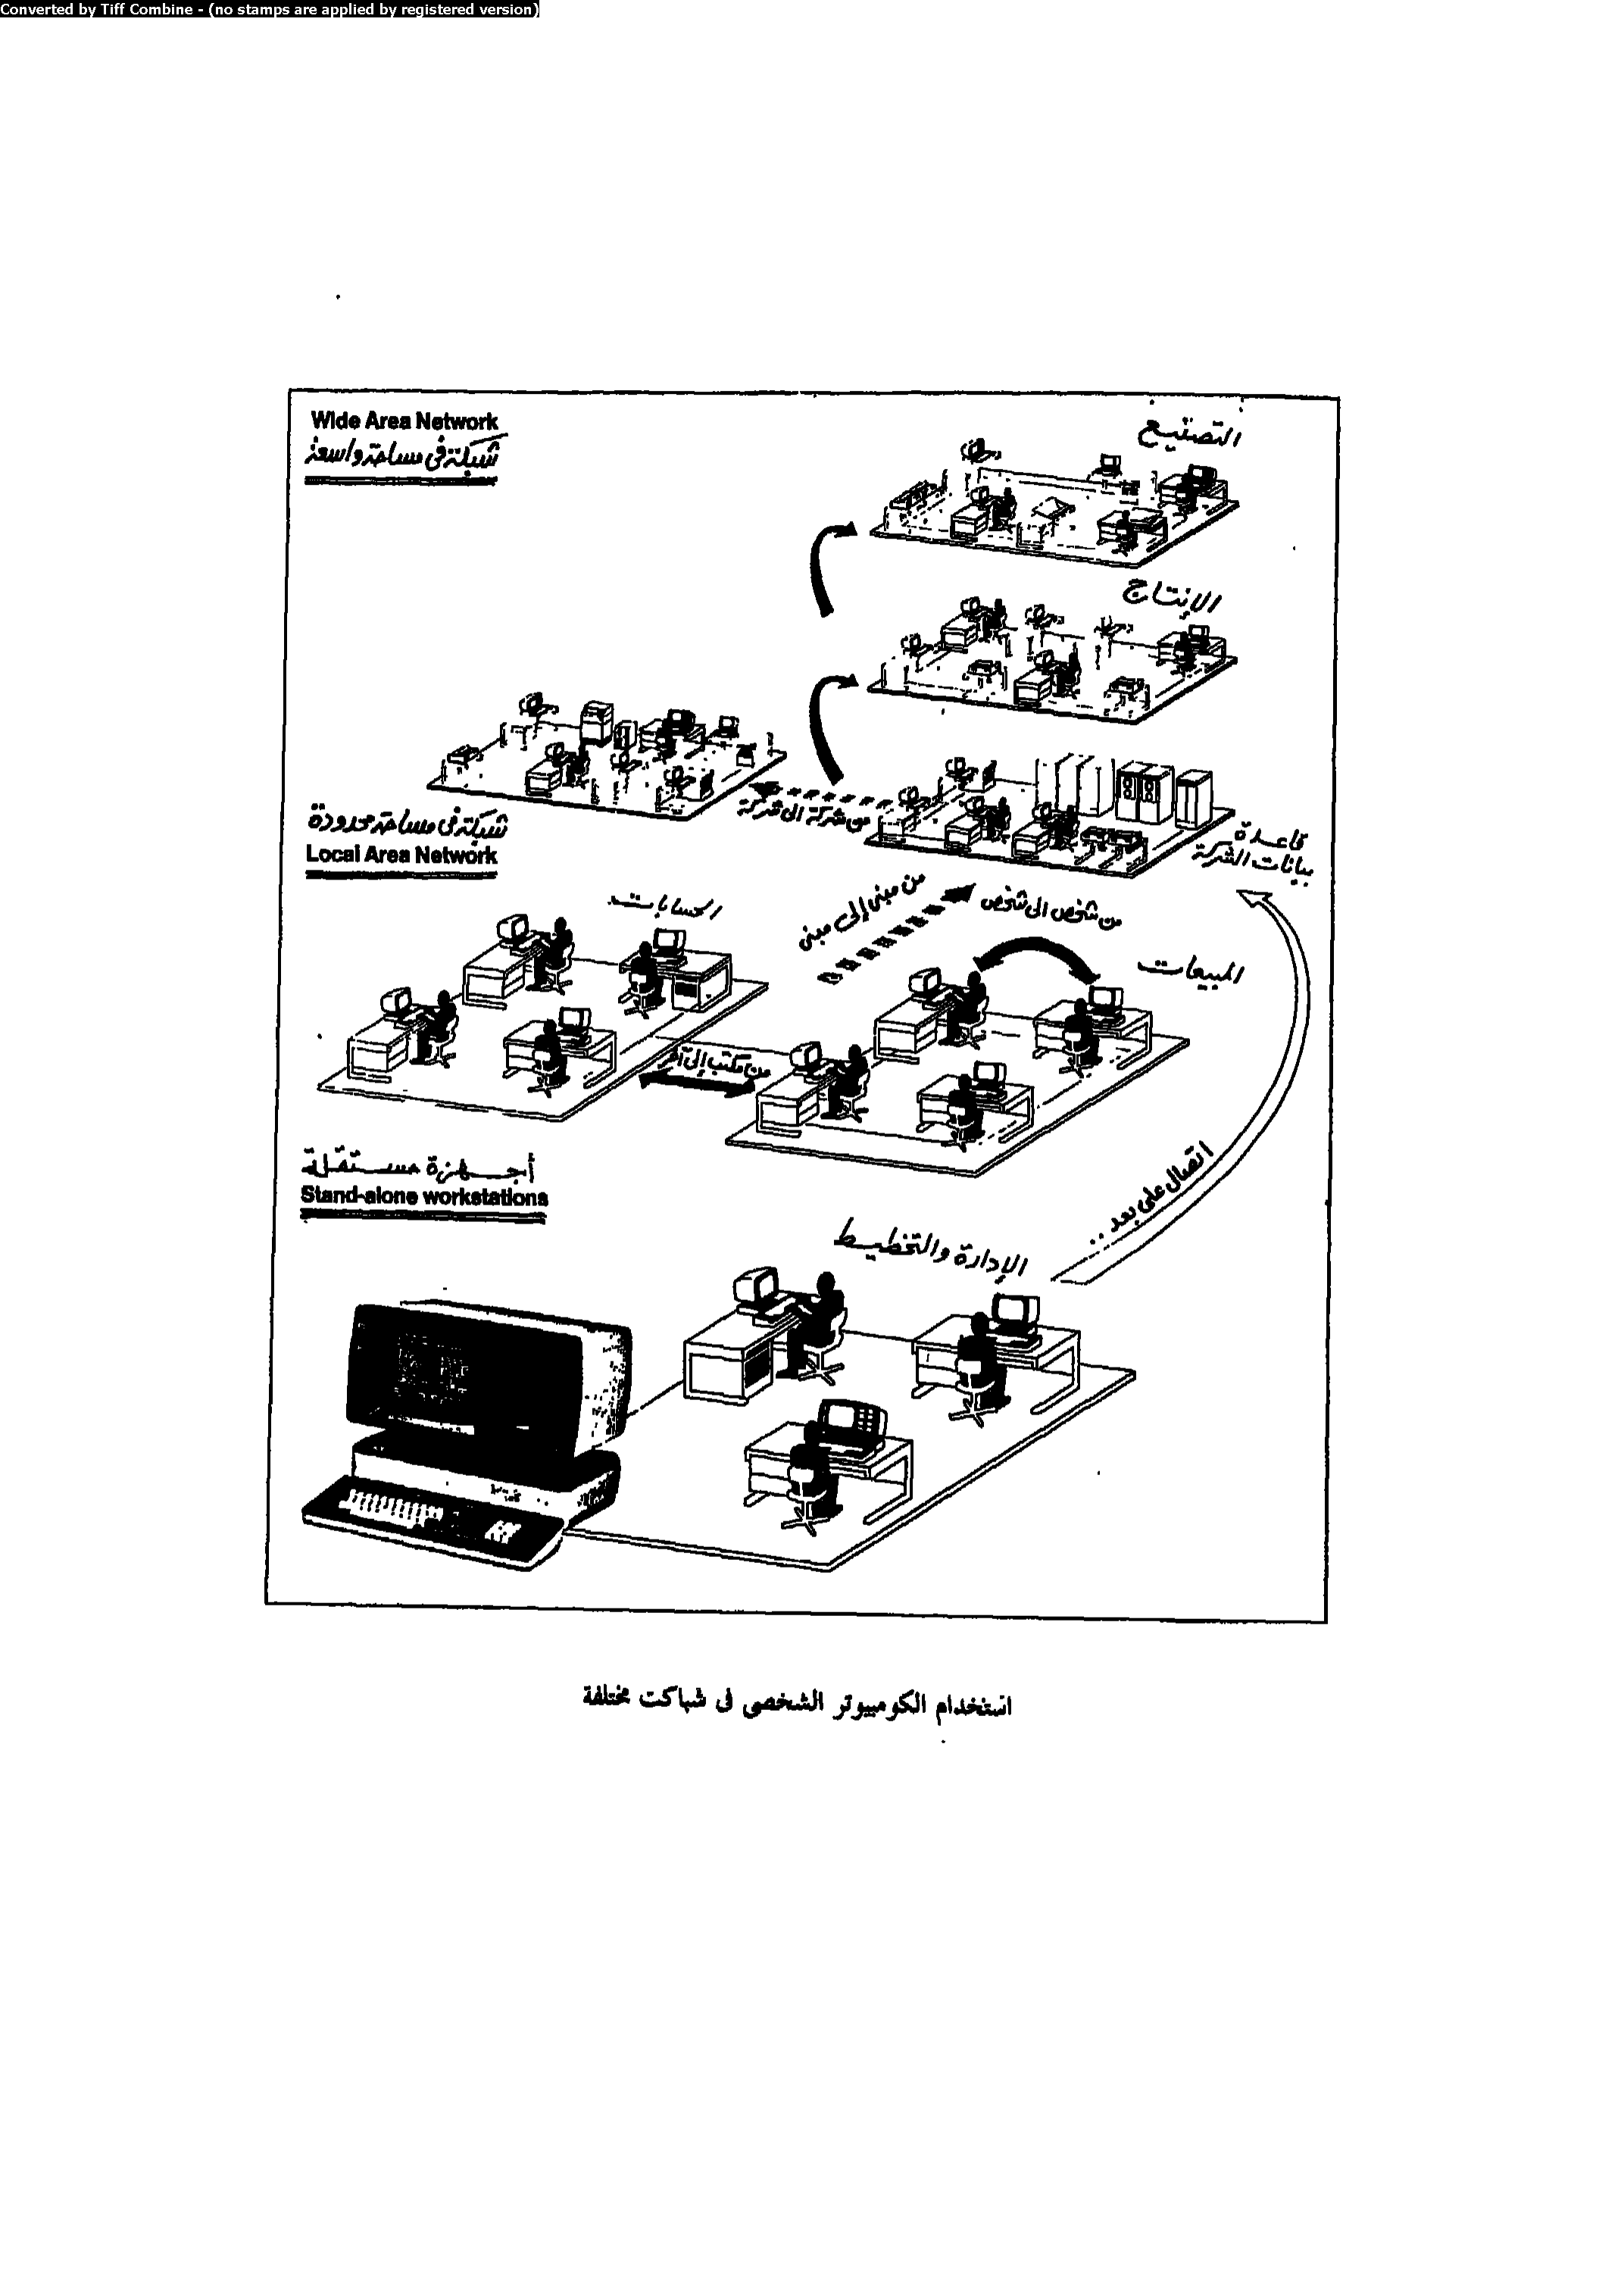 Converted by Tiff Combine - (no stamps are applied by registered version)
Wide Area Network
شبكة فى مساحة واسعة
التصنيع
الإنتاج
من شركة الى شركة
قاعدة
بيانات الشركة
شبكة فى مساحة محدودة
Local Area Network
الحسابات
من مبنى إلى مبنى
من شخص الى شخص
المبيعات
من مكتب إلى آخر
أجهزة مستقلة
Stand-alone workstations
اتصال على بعد ..
الإدارة والتخطيط
استخدام الكومبيوتر الشخصى فى شباكت مختلفة